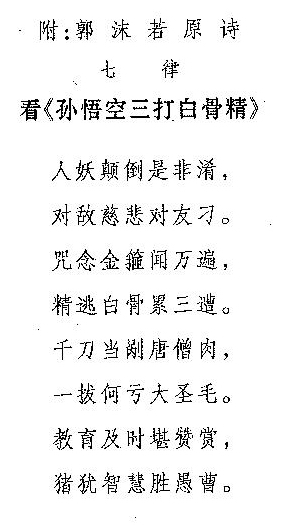 附:郭沫若原诗
七律
看《孙悟空三打白骨精》
人妖颠倒是非淆，
对敌慈悲对友刁。
咒念金箍闻万遍，
精逃白骨累三遭。
千刀当剐唐僧肉，
一拔何亏大圣毛。
教育及时堪赞赏，
猪犹智慧胜愚曹。